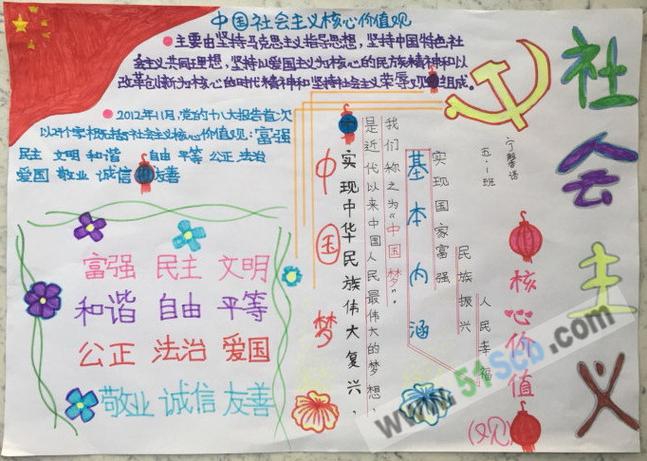 中国社会主义核心价值观
主要由坚持马克思主义指导思想,坚持中国特色社
会主义共同理想,坚持以爱国主义为核心的民族精神和以
改革创新为核心的时代精神和坚持社会主义荣辱观组成。
2012年11月,党的十八大报告首次
以24个字概括社会主义核心价值观:富强
民主 文明 和谐 自由 平等 公正 法治
爱国 敬业 诚信 友善
富强 民主 文明
和谐 自由 平等
公正 法治 爱国
敬业 诚信 友善
中国梦
实现中华民族伟大复兴,
是近代以来中国人民最伟大的梦想,
我们称之为“中国梦”。
基本内涵
实现国家富强
民族振兴
人民幸福
五.1班
核心价值
(观)
社会主义
www.51Scb.com